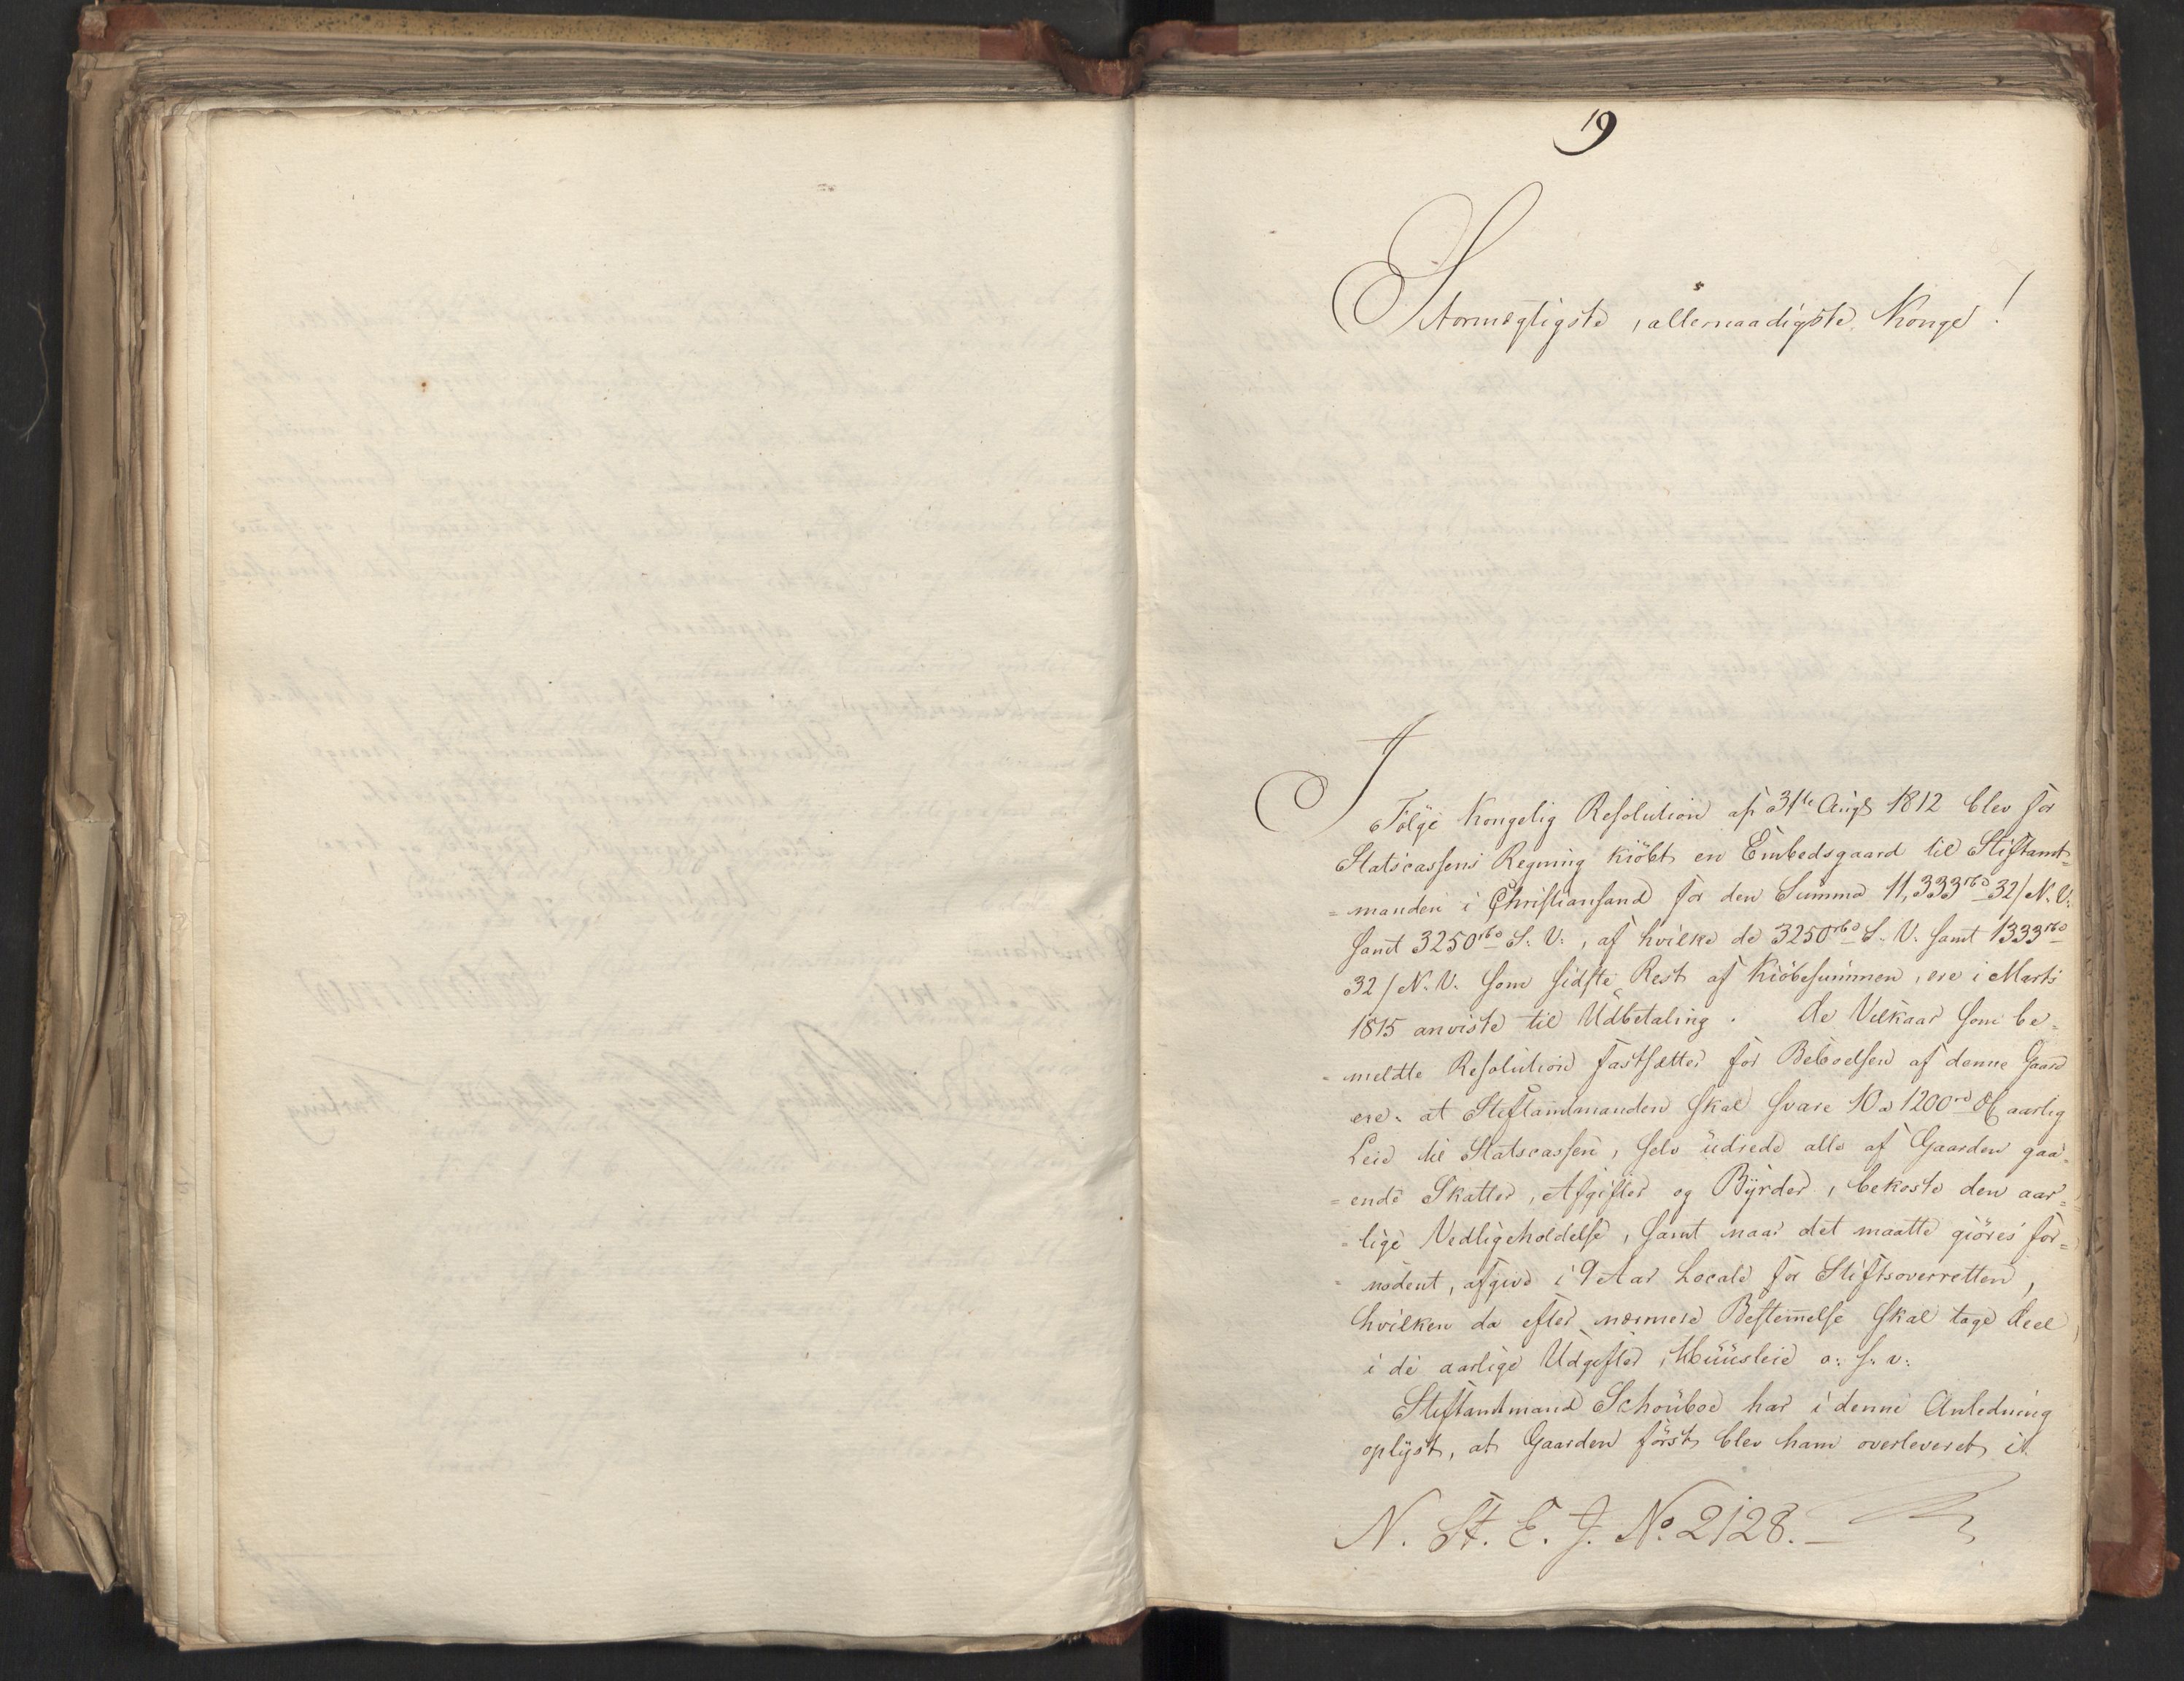 19
Stormægtigste, allernaadigste Konge!
I
Følge Kongelig Resolution af 31te Augt 1812 blev for
Statscassens Regning kiøbt en Embedsgaard til Stiftamt=
=manden i Christiansand for den Summa 11,333rbd 32/ N. V.
samt 3250rbd S. V:, af hvilke de 3250rbd S. V. samt 1333rbd
32/ N. V. som sidste Rest af Kiøbesummen, ere i Marts
1815 anviste til Udbetaling. De Vilkaar som be=
=meldte Resolution fastsætter for Beboelsen af denne Gaard
ere: at Stiftamtmanden skal svare 10 a 1200rd aarlig
Leie til Statscassen, selv udrede alle af Gaarden gaa=
=ende Skatter, Afgifter og Byrder, bekoste den aar=
=lige Vedligeholdelse, samt naar det maatte giøres for=
=nødent, afgive i 9 Aar Locale for Stiftsoverretten,
hvilken da efter nærmere Bestemelse skal tage Deel
i de aarlige Udgifter, Huusleie o: s. v:
Stiftamtmand Schouboe har i denne Anledning
oplyst, at Gaarden først blev ham overleveret i
N. St. E. J. No. 2128.